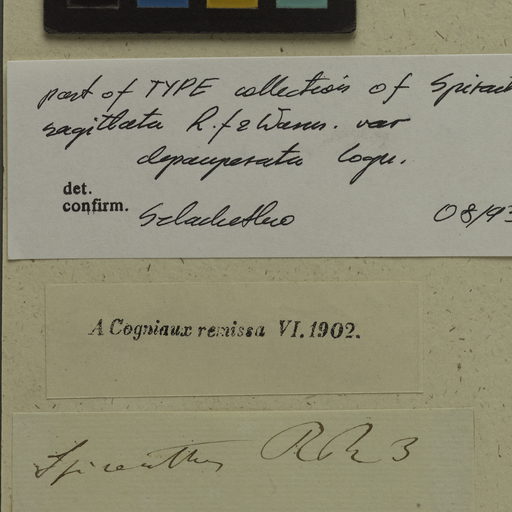 part of TYPE collection of Spiranth
sagittata R. f & Warm. var
depauperata Cogn.
det.
confirm. Szlachetko 08/93
A Cogniaux remissa VI. 1902.
Spiranthes RR 3